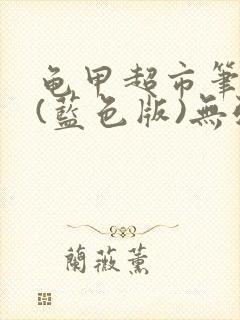 龟甲超市筆
(藍色版)無
蘭薇薰